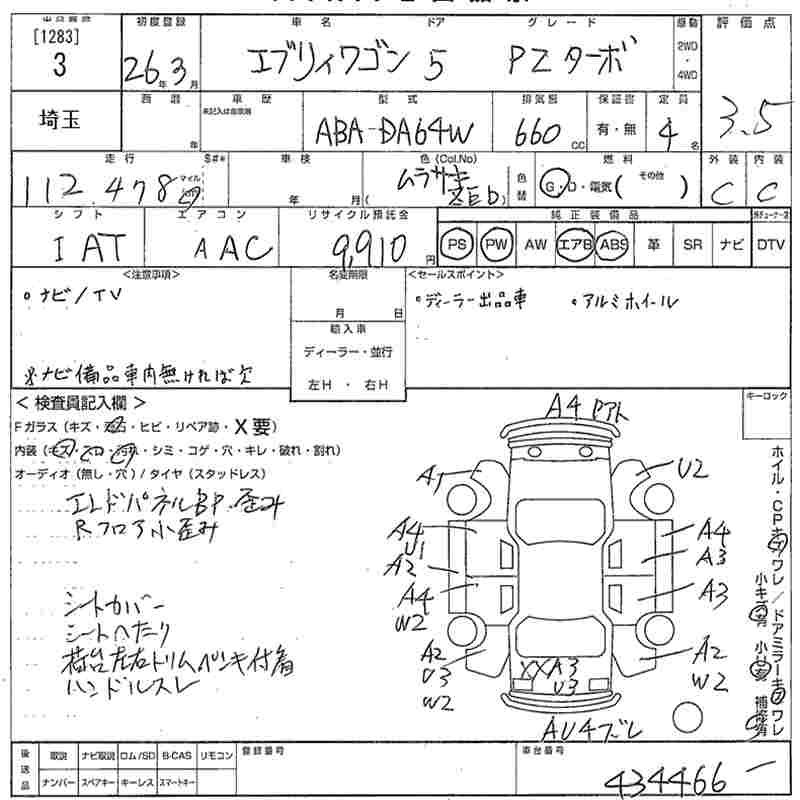 [1283]
3
初度登録
26年3月
車名 ドア グレード
エブリィワゴン 5 PZターボ
駆動
2WD
・
4WD
評価点
3.5
埼玉
西暦
年
車歴
未記入は自家用
型式
ABA-DA64W
排気量
660CC
保証書
有・無
定員
4名
走行
112,478
マイル
km
S#*
車検
年 月(
色(Col.No)
ムラサキ
ZEb)
色替
燃料
G・D・電気( その他 )
外装
C
内装
C
シフト
IAT
エアコン
AAC
リサイクル預託金
9,910円
純正装備品
PS PW AW エアB ABS 革 SR ナビ DTV
<注意事項>
・ナビ/TV
※ナビ備品車内無ければ欠
名変期限
月 日
輸入車
ディーラー・並行
左H ・ 右H
<セールスポイント>
・ディーラー出品車 ・アルミホイール
<検査員記入欄>
Fガラス(キズ・飛石・ヒビ・リペア跡・X要)
内装(キズ・ヨゴレ・汚れ・シミ・コゲ・穴・キレ・破れ・割れ)
オーディオ(無し・穴)/タイヤ(スタッドレス)
エンドパネルBP・歪み
Rフロア小歪み
シートカバー
シートヘタリ
荷台左右トリムペンキ付着
ハンドルスレ
キーロック
A4 Pアト
A1
U2
A4
U1
A2
A4
W2
A4
A3
A3
A2
U3
W2
XXA3
U3
A2
W2
AU4ズレ
ホイル・CPキズワレ/ドアミラーキズワレ
後送品
取説 ナビ取説 ロム/SD B-CAS リモコン
ナンバー スペアキー キーレス スマートキー
登録番号
車台番号
434466